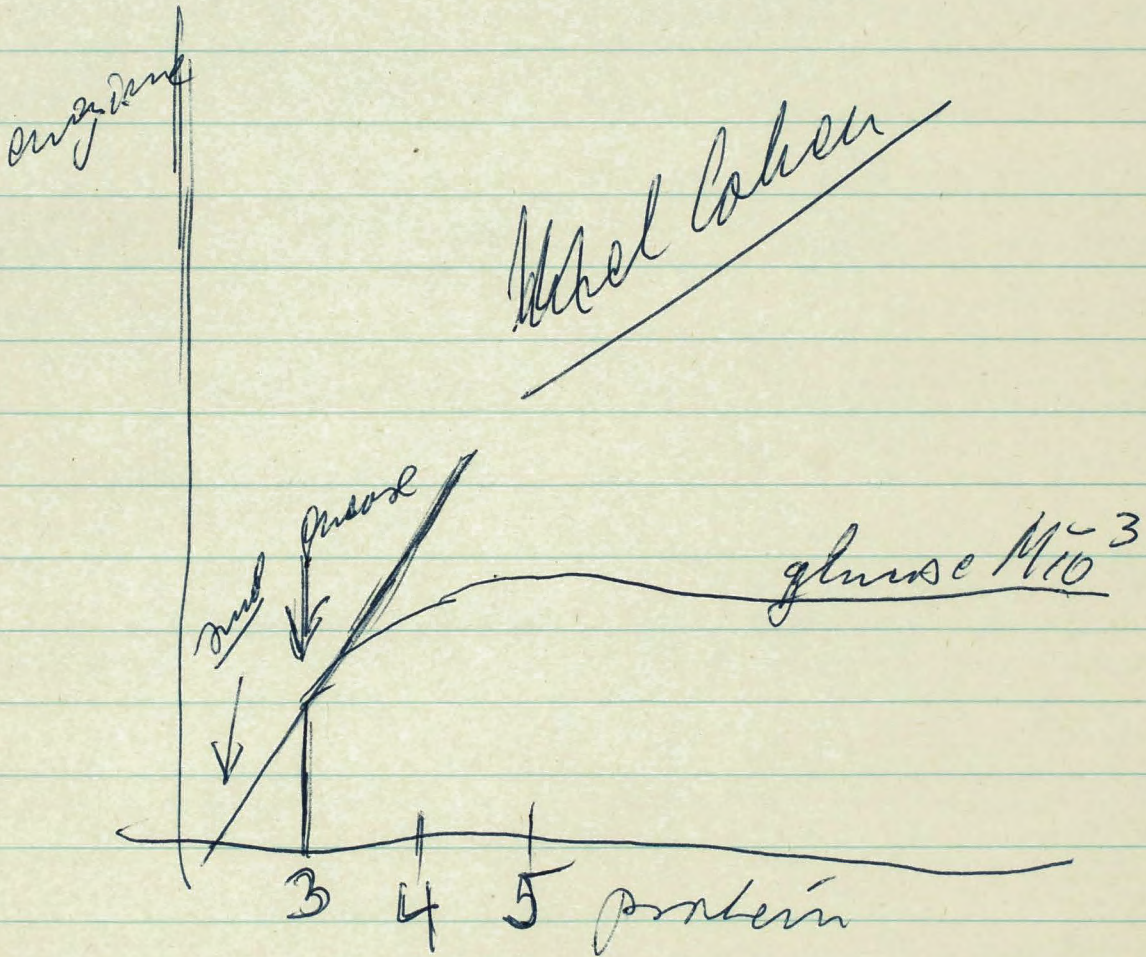 enzyme
Cohen
glucose
glucose M10⁻³
3 4 5 protein